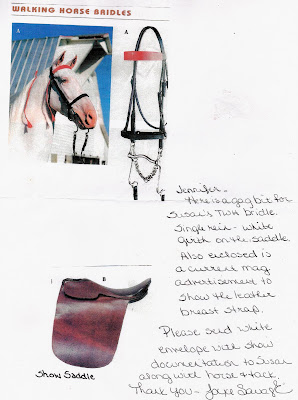 WALKING HORSE BRIDLES
A
A
Jennifer -
Here is a gag bit for
Susan's TWH bridle.
Single rein - white
girth on the saddle.
Also enclosed is
a current mag
advertisement to
show the leather
breast strap.
Please send white
envelope with show
documentation to Susan
along with horse & tack.
Thank you - Joyce Savage
B
Show Saddle